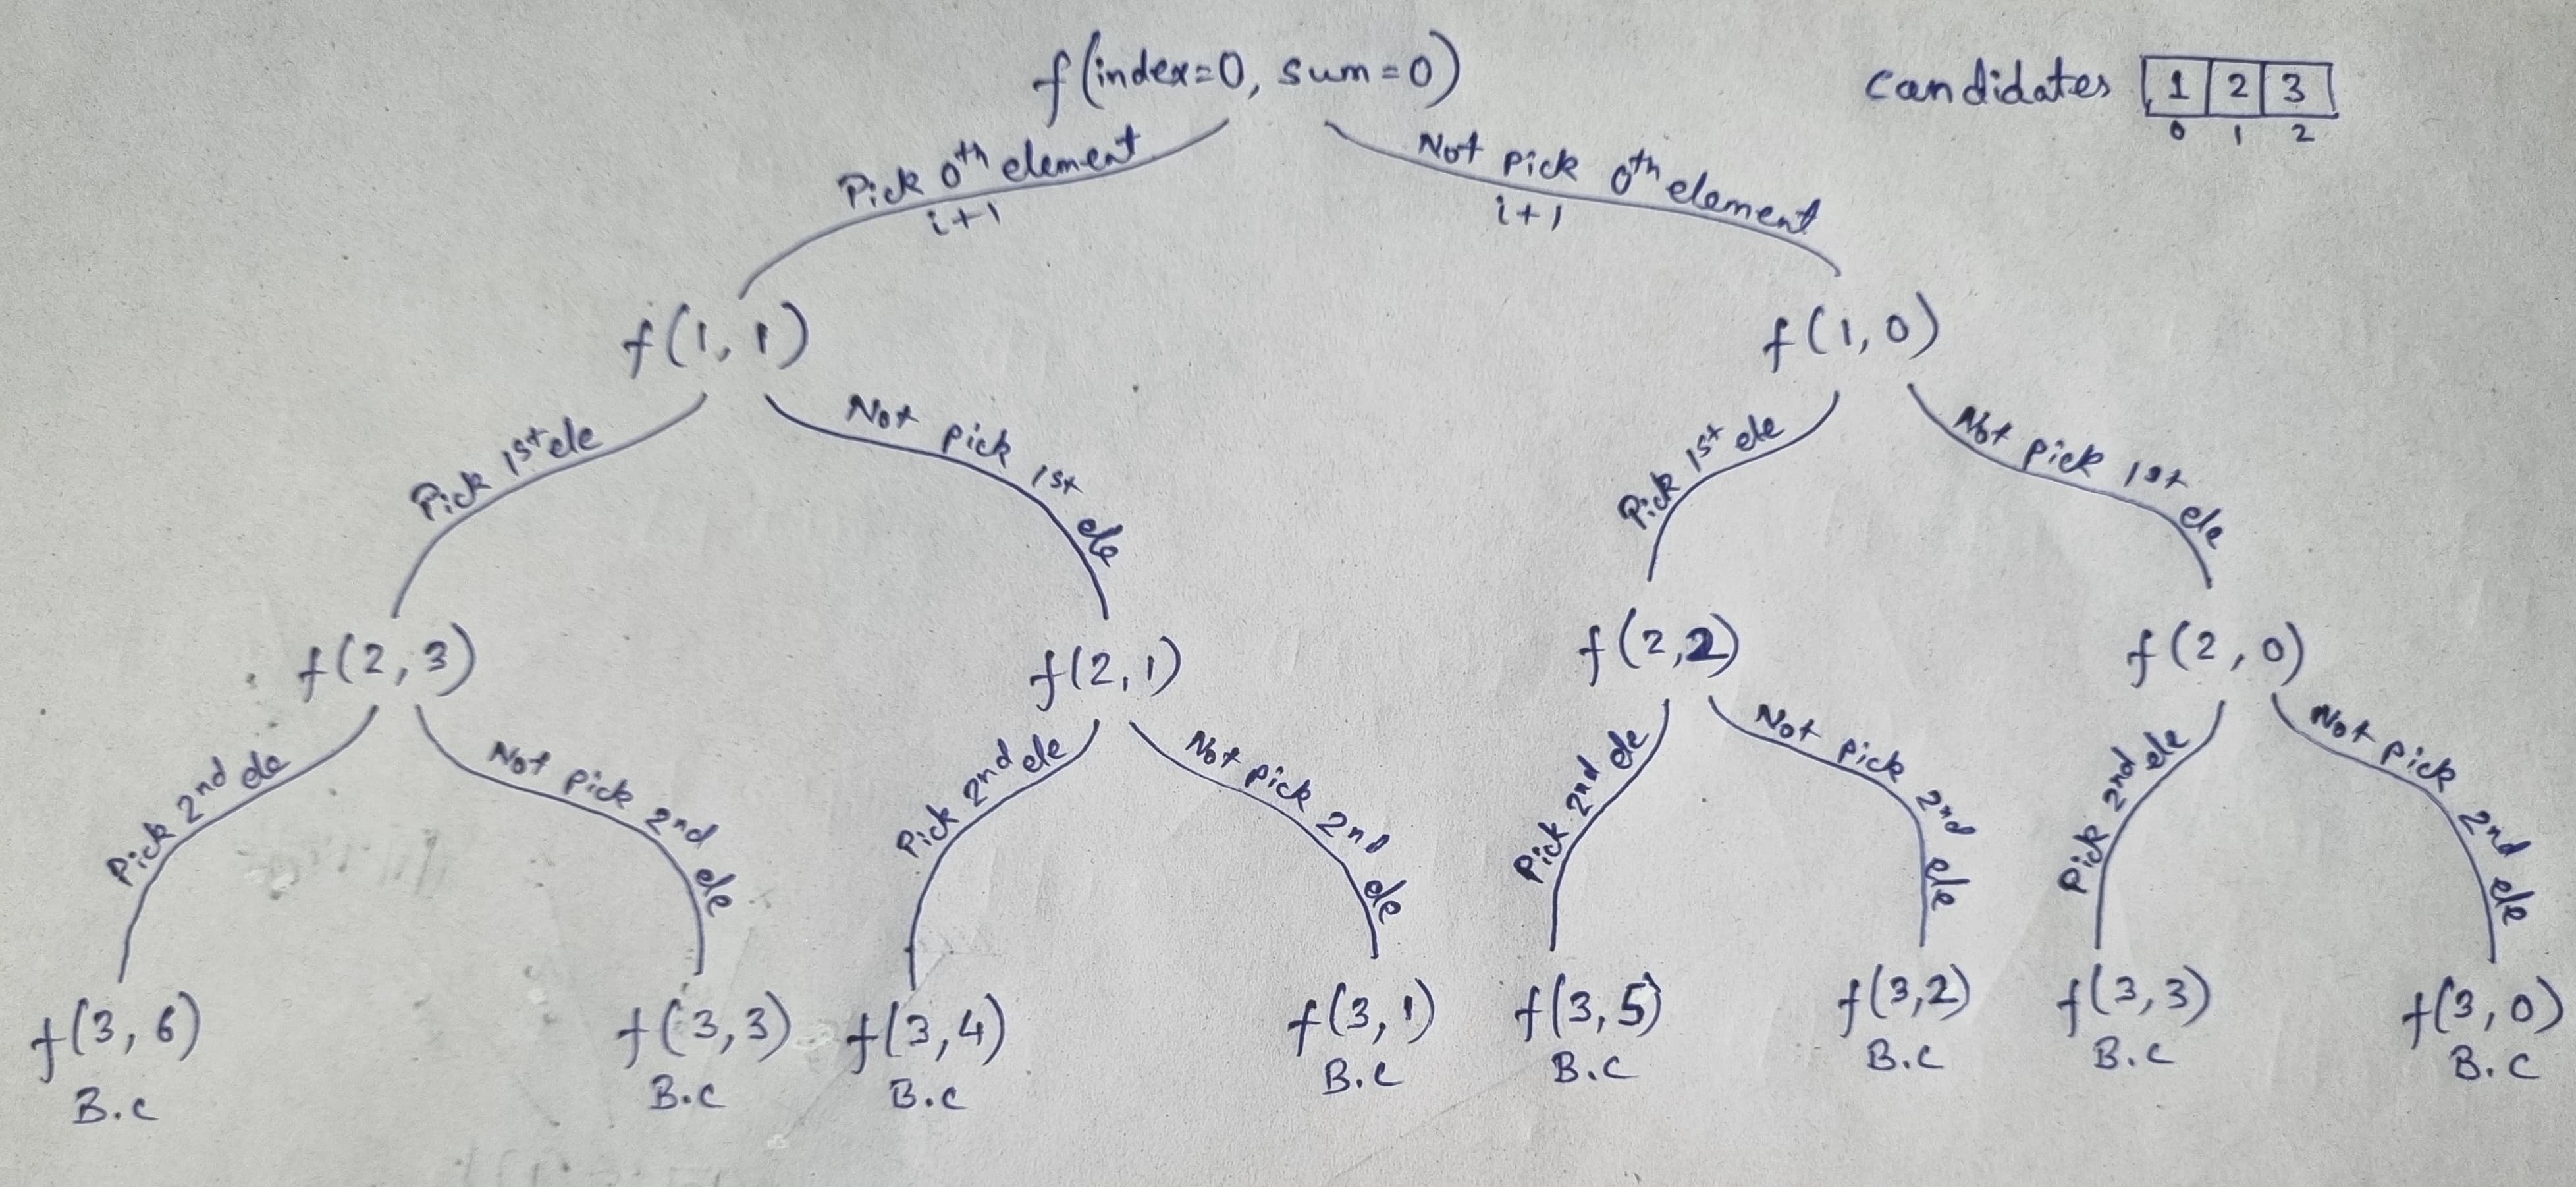 f(index=0, sum=0)
candidates 1 2 3
0 1 2
Pick 0th element
i+1
Not pick 0th element
i+1
f(1, 1)
f(1, 0)
Pick 1st ele
Not pick 1st ele
Pick 1st ele
Not pick 1st ele
f(2, 3)
f(2, 1)
f(2, 2)
f(2, 0)
Pick 2nd ele
Not pick 2nd ele
Pick 2nd ele
Not pick 2nd ele
Pick 2nd ele
Not pick 2nd ele
Pick 2nd ele
Not pick 2nd ele
f(3, 6)
B.C
f(3, 3)
B.C
f(3, 4)
B.C
f(3, 1)
B.C
f(3, 5)
B.C
f(3, 2)
B.C
f(3, 3)
B.C
f(3, 0)
B.C